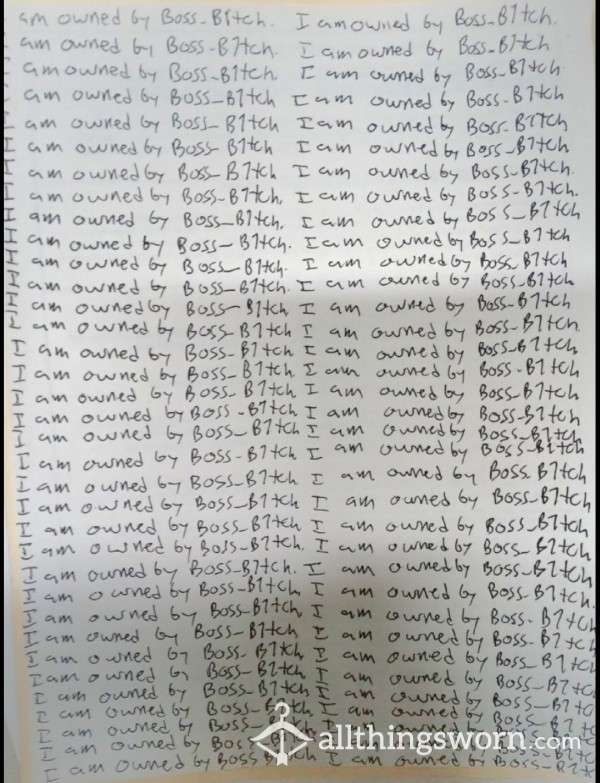 am owned by Boss-B1tch. I am owned by Boss-B1tch.
am owned by Boss-B1tch I am owned by Boss-B1tch
am owned by Boss-B1tch. I am owned by Boss-B1tch
am owned by Boss_B1tch I am owned by Boss-B1tch
I am owned by Boss_B1tch I am owned by Boss-B1tch
I am owned by Boss-B1tch I am owned by Boss-B1tch.
I am owned by Boss_B1tch I am owned by Boss-B1tch.
I am owned by Boss-B1tch. I am owned by Boss-B1tch.
I am owned by Boss_B1tch. I am owned by Boss_B1tch
I am owned by Boss-B1tch. I am owned by Boss_B1tch
I am owned by Boss_B1tch. I am owned by Boss_B1tch
I am owned by Boss_B1tch. I am owned by Boss_B1tch
I am owned by Boss-B1tch I am owned by Boss-B1tch
I am owned by Boss-B1tch I am owned by Boss-B1tch
I am owned by Boss-B1tch I am owned by Boss-B1tch
I am owned by Boss-B1tch I am owned by Boss-B1tch
I am owned by Boss-B1tch I am owned by Boss-B1tch
I am owned by Boss-B1tch I am owned by Boss-B1tch
I am owned by Boss_B1tch I am owned by Boss_B1tch
I am owned by Boss-B1tch I am owned by Boss-B1tch
I am owned by Boss-B1tch I am owned by Boss-B1tch
I am owned by Boss-B1tch I am owned by Boss-B1tch
I am owned by Boss_B1tch I am owned by Boss_B1tch
I am owned by Boss-B1tch. I am owned by Boss_B1tch
I am owned by Boss-B1tch. I am owned by Boss_B1tch
I am owned by Boss-B1tch I am owned by Boss-B1tch.
I am owned by Boss-B1tch I am owned by Boss-B1tch
I am owned by Boss-B1tch I am owned by Boss-B1tch
I am owned by Boss-B1tch I am owned by Boss-B1tch
I am owned by Boss-B1tch I am owned by Boss-B1tch
I am owned by Boss-B1tch I am owned by Boss_B1tc
I am owned by Boss-B1tch I am owned by Boss-B1tc
I am owned by Boss I am owned by Boss
I am owned by
I am owned by Boss
allthingsworn.com